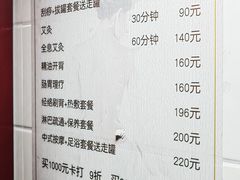 刮痧+拔罐套餐送走罐 30分钟 90元
艾灸 60分钟 140元
全息艾灸 160元
精油开背 160元
肠胃理疗 160元
经络刷背+热敷套餐 196元
淋巴疏通+保养套餐 200元
中式按摩+足浴套餐送走罐 220元
买1000元卡打 9折